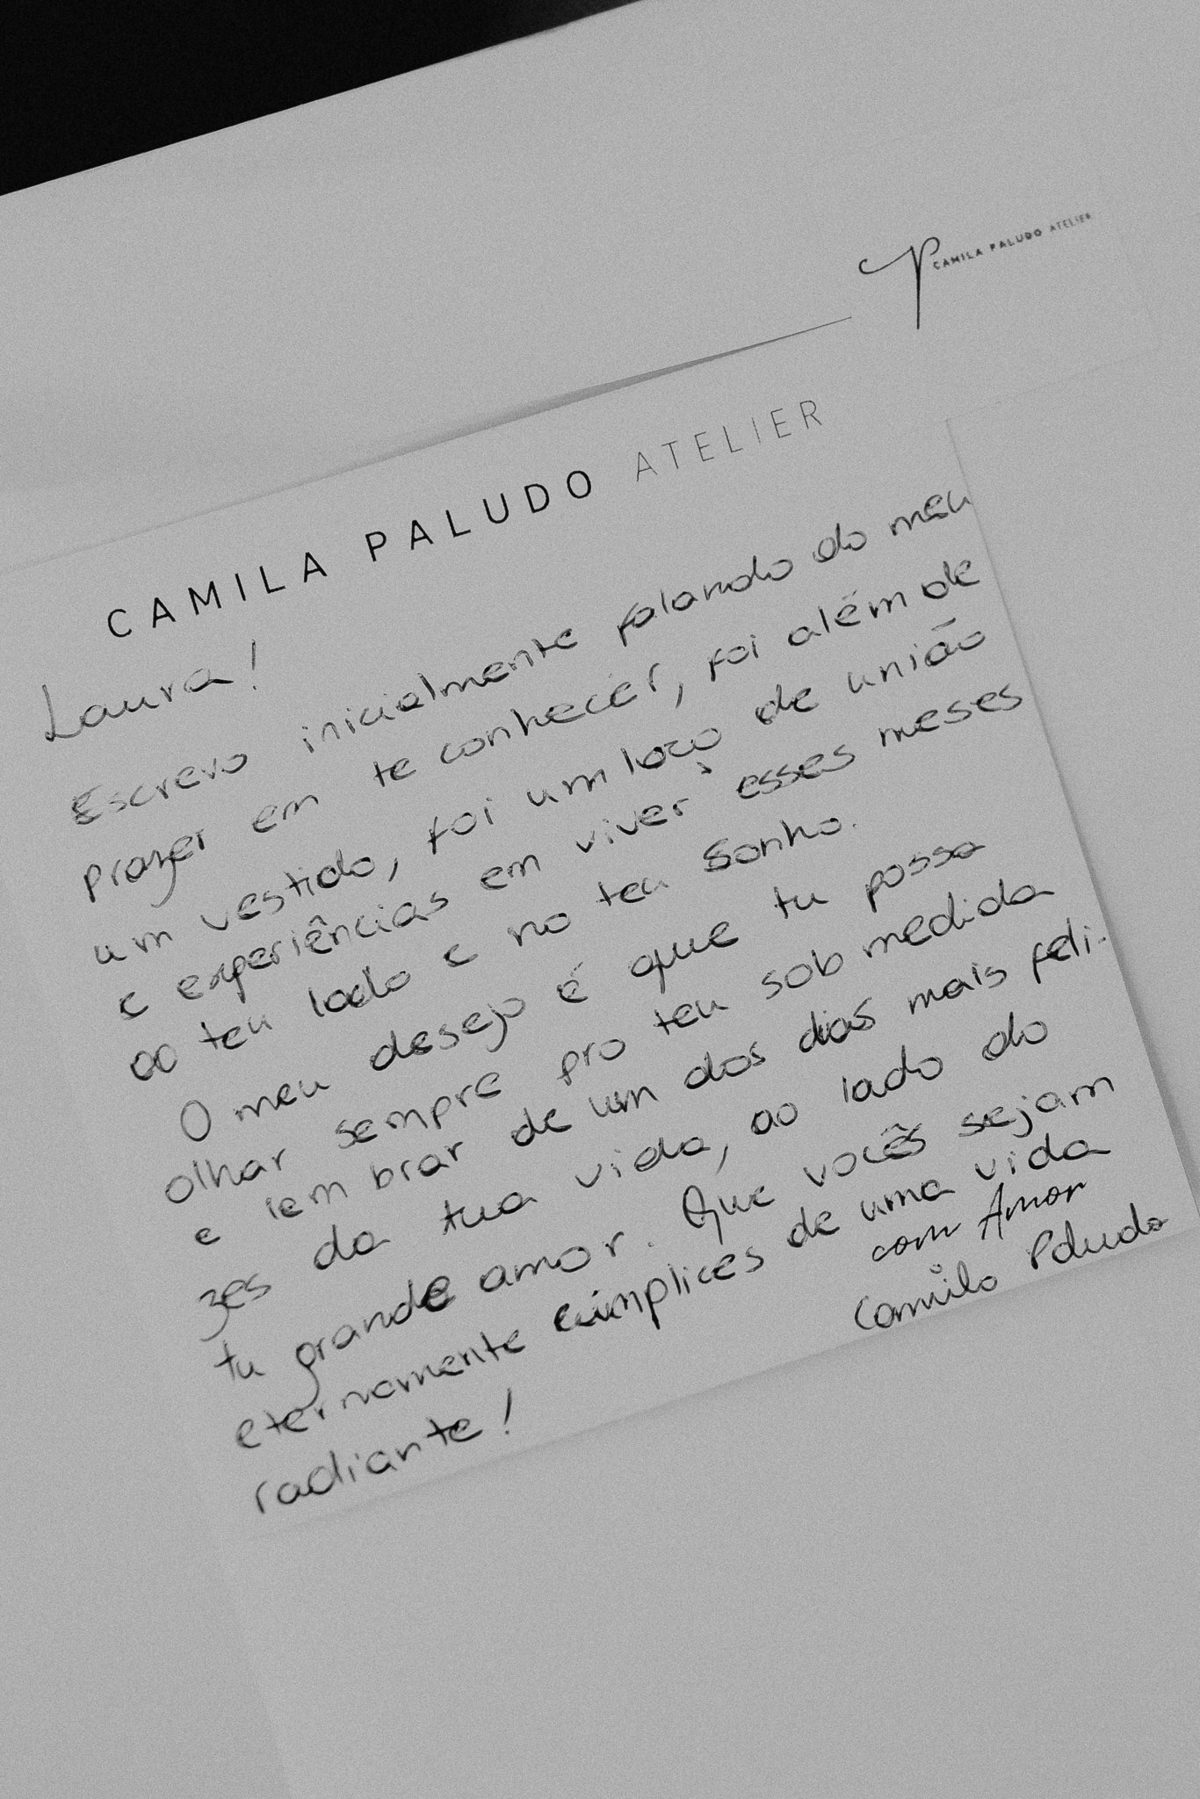 CAMILA PALUDO ATELIER
CAMILA PALUDO ATELIER
Laura!
Escrevo inicialmente falando do meu
prazer em te conhecer, foi além de
um vestido, foi um laço de união
e experiências em viver esses meses
ao teu lado e no teu sonho.
O meu desejo é que tu possa
olhar sempre pro teu sob medida
e lembrar de um dos dias mais feli-
zes da tua vida, ao lado do
tu grande amor. Que vocês sejam
eternamente cúmplices de uma vida
radiante!
com Amor
Camila Paludo